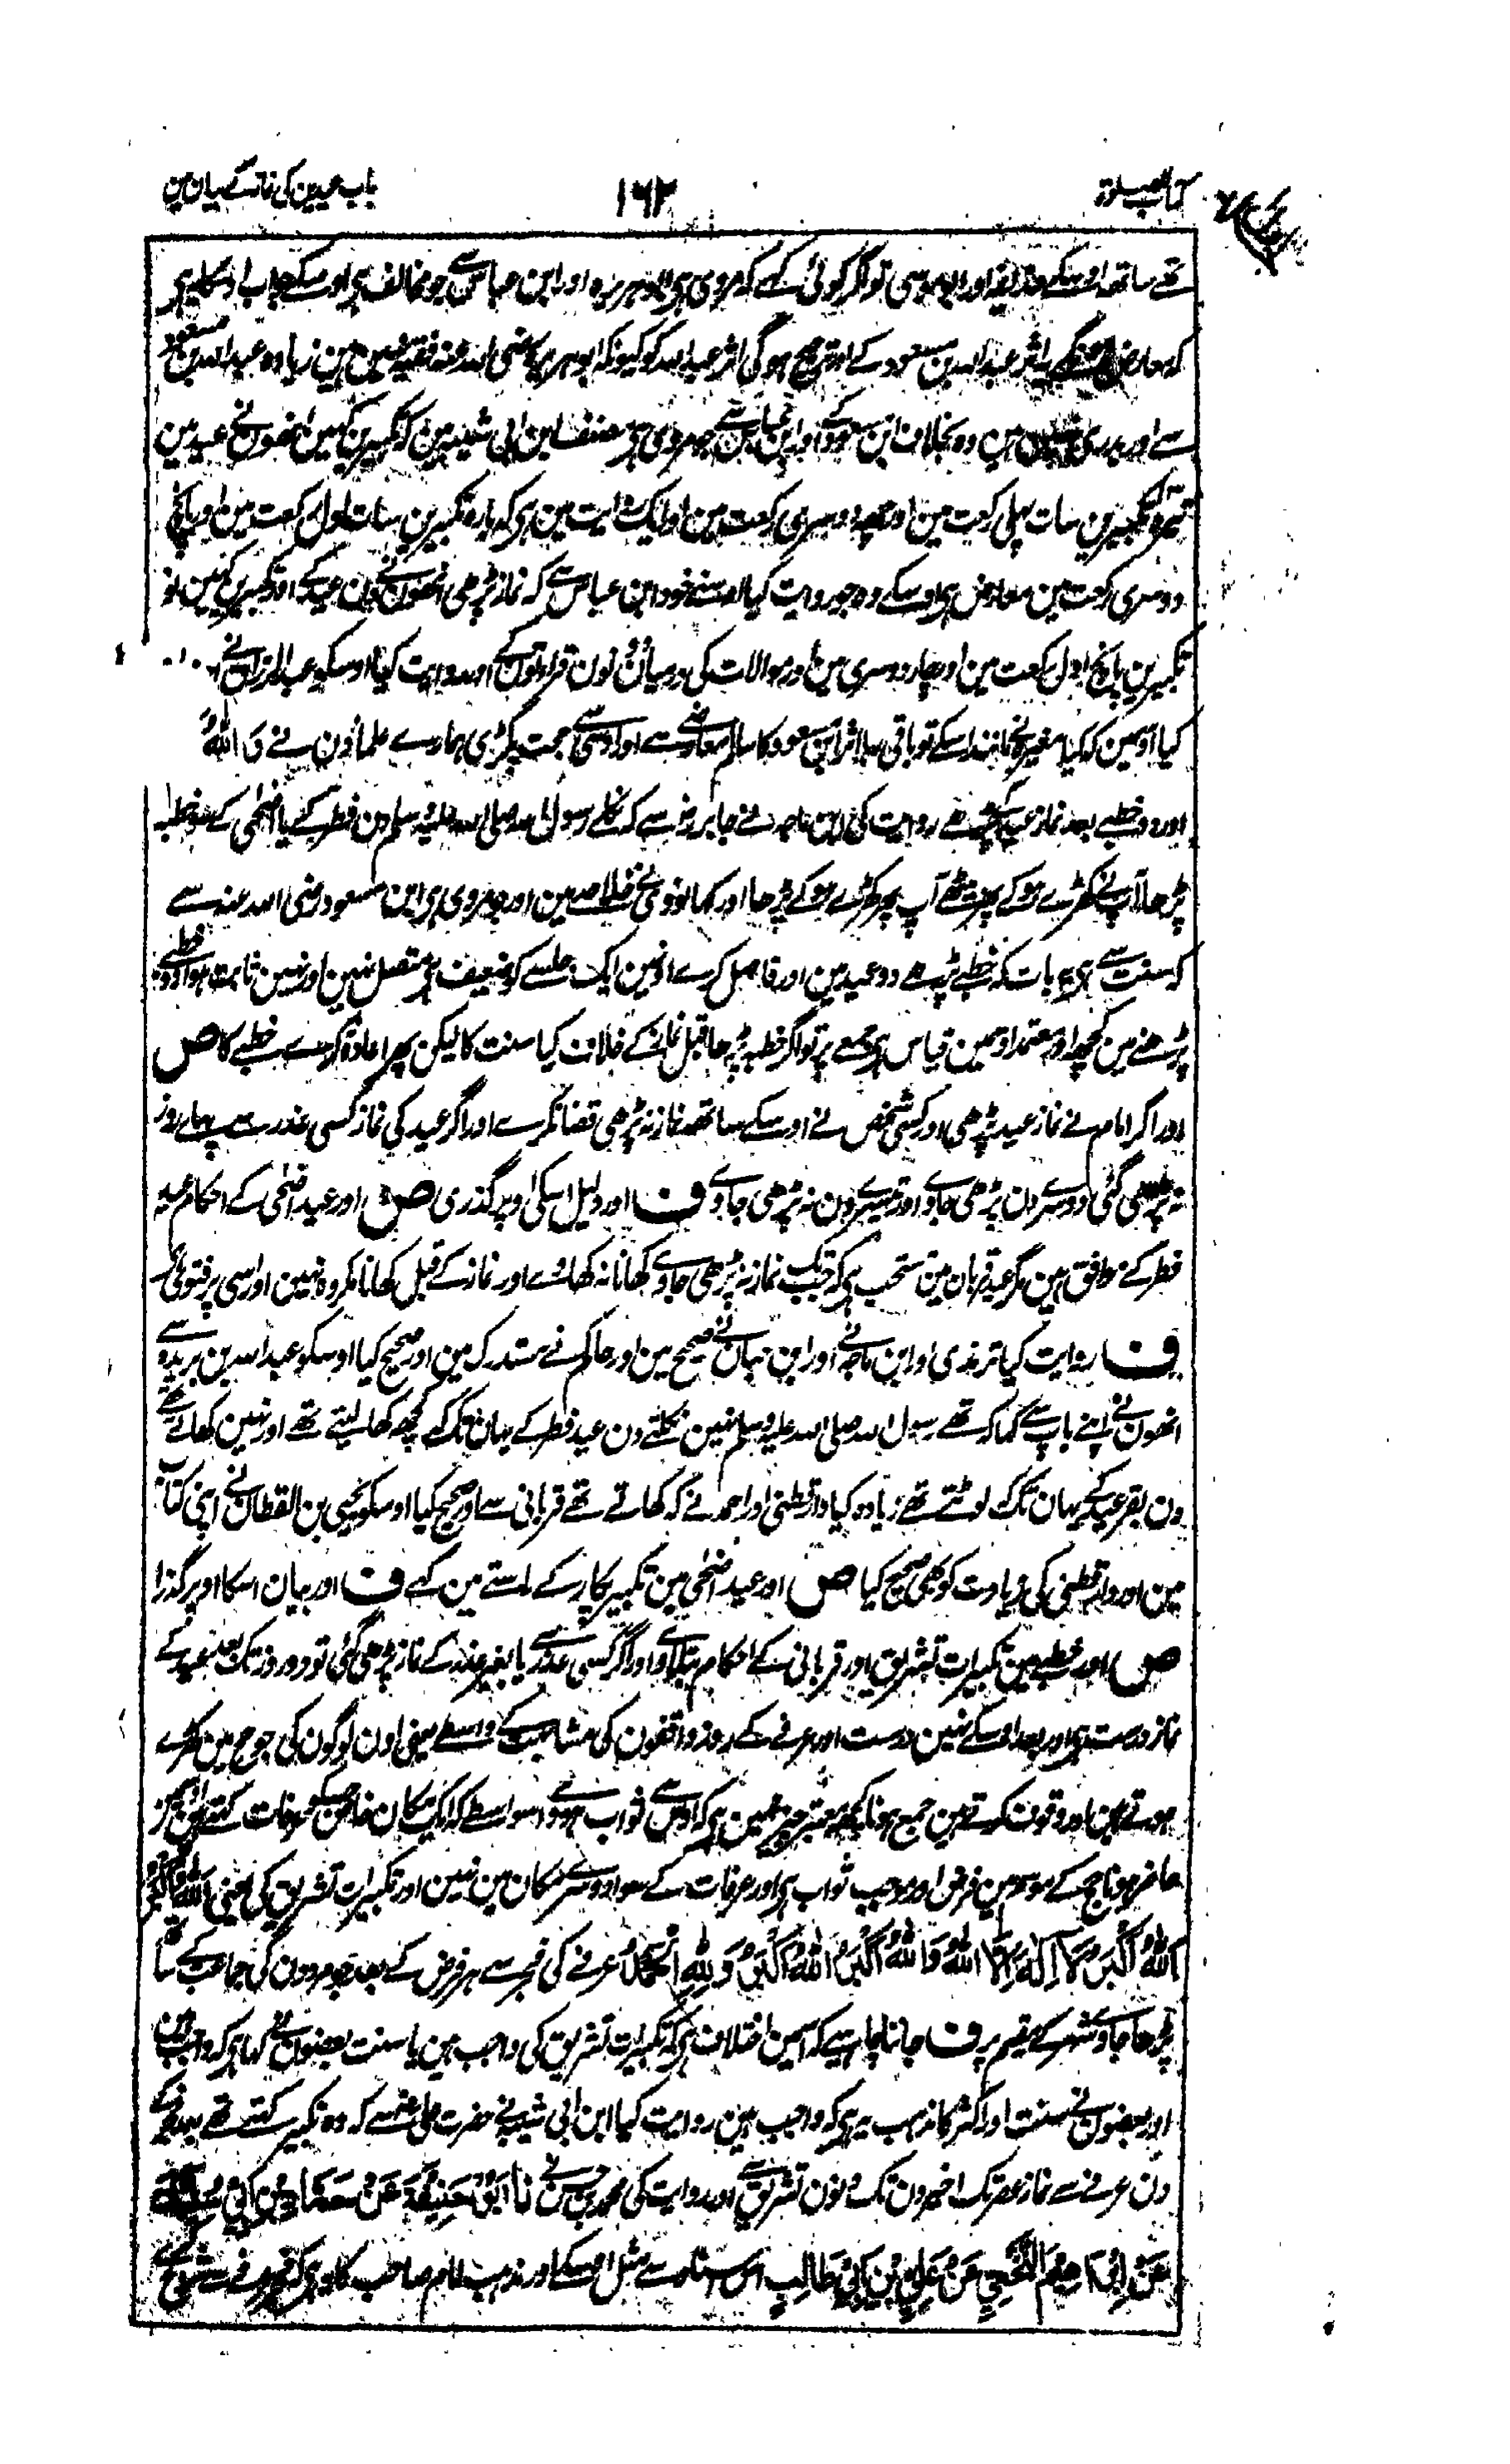 کتاب الصلوٰۃ
۱۶۲
باب عیدین کی نماز کے بیان مین
تھے ساتھ اوسکے حذیفہ اور ابو موسی تو اگر کوئی کہے کہ مروی ہی ابو ہریرہ اور ابن عباس سے جو مخالف ہی اوسکے جواب اوسکا یہ ہی
کہ معارض اثر عبد اللہ بن مسعود کے اور ترجیح ہوگی اثر عبد اللہ کو کیونکہ ابو ہریرہ رضی اللہ عنہ فقیہ نہین ہین زیادہ عبد اللہ بن مسعود
سے اور مروی ہین وہ بخلاف ابن مسعود کے اور ابن عباس سے جو مروی ہی مصنف ابن ابی شیبہ مین کہ تکبیرین کہین انھون نے عید مین
تیرہ تکبیرین سات پہلی رکعت مین اور چھ دوسری رکعت مین اور ایک روایت مین ہی کہ بارہ تکبیرین سات اول رکعت مین اور پانچ
دوسری رکعت مین معارض ہی اوسکے وہ جو روایت کیا اوسنے خود ابن عباس سے کہ نماز پڑھی انھون نے دن عید کے اور تکبیرین کہین نو
تکبیرین پانچ اول رکعت مین اور چار دوسری مین اور موالات کی درمیان دونون قراءتون کے اور روایت کیا اوسکو عبد الرزاق نے
کیا اوسمین کہ کیا مغیرہ نے مانند اسکے تو باقی رہا اثر ابن مسعود کا سالم معارضے سے اور اوسی سے حجت پکڑی ہمارے علماؤن نے وَاللّٰهُ
اور دو خطبے بعد نماز عید کے پڑھے روایت کی ابن ماجہ نے جابر رض سے کہ نکلے رسول اللہ صلی اللہ علیہ وسلم دن فطر کے یا اضحٰی کے سو خطبہ
پڑھا آپ نے کھڑے ہو کے پھر بیٹھے آپ پھر کھڑے ہو کے پڑھا اور کہا نووی نے خلاصہ مین اور جو مروی ہی ابن مسعود رضی اللہ عنہ سے
کہ سنت سے ہی یہ بات کہ خطبے پڑھے دو عید مین اور فاصل کرے اونمین ایک جلسے کو ضعیف ہی متصل نہین اور نہین ثابت ہوا دو خطبے
پڑھنے مین کچھ اور معتمد اوسمین قیاس ہی جمعے پر تو اگر خطبہ پڑھا قبل نماز کے خلاف کیا سنت کا لیکن پھر اعادہ نکرے خطبے کا ص
اور اگر امام نے نماز عید پڑھی اور کسی شخص نے اوسکے ساتھ نماز نہ پڑھی قضا نکرے اور اگر عید کی نماز کسی عذر سے پہلے روز
نہ پڑھی گئی دوسرے دن پڑھی جاوے اور تیسرے دن نہ پڑھی جاوے ف اور دلیل اسکی اوپر گذری ص اور عید اضحٰی کے احکام عید
فطر کے موافق ہین مگر عید قربان مین مستحب ہی کہ جب تک نماز نہ پڑھی جاوے کھانا نہ کھاوے اور نماز کے قبل کھانا مکروہ نہین اور اسی پر فتویٰ ہی
ف روایت کیا ترمذی اور ابن ماجہ نے اور ابن حبان نے صحیح مین اور حاکم نے مستدرک مین اور صحیح کیا اوسکو عبد اللہ بن بریدہ سے
انھون نے اپنے باپ سے کہا کہ تھے رسول اللہ صلی اللہ علیہ وسلم نہین نکلتے دن عید فطر کے یہان تک کہ کچھ کھا لیتے تھے اور نہین کھاتے تھے
دن بقر عید کے یہان تک کہ لوٹتے تھے زیادہ کیا دارقطنی اور احمد نے کہ کھاتے تھے قربانی سے اور صحیح کیا اوسکو یحیی بن القطان نے اپنی کتاب
مین اور دارقطنی کی زیادت کو بھی صحیح کیا ص اور عید اضحٰی مین تکبیر پکار کے راستے مین کہے ف اور بیان اسکا اوپر گذرا
ص اور خطبے مین تکبیرات تشریق اور قربانی کے احکام بتلاوے اور اگر کسی عذر سے یا بغیر عذر کے نماز نہ پڑھی گئی تو دو روز تک بعد عید کے
نماز درست ہی اور بعد اوسکے نہین درست اور عرفے کے روز واقفون کی مشابہت کے واسطے یعنی اون لوگون کی جو حج مین کھڑے
ہوتے ہین اور وقوف کرتے ہین جمع ہونا کچھ معتبر چیز نہین ہی کہ اوس سے ثواب ہووے اسواسطے کہ ایک مکان خاص جسکو عرفات کہتے ہین اوسمین
حاضر ہونا حج کے موسم مین فرض اور موجب ثواب ہی اور عرفات کے سوا دوسرے مکان مین نہین اور تکبیرات تشریق کی یعنی اَللّٰهُ اَکْبَرُ
اَللّٰهُ اَکْبَرُ لَا اِلٰهَ اِلَّا اللّٰهُ وَاللّٰهُ اَکْبَرُ اَللّٰهُ اَکْبَرُ وَلِلّٰهِ الْحَمْدُ عرفے کی فجر سے ہر فرض کے بعد جو مردون کی جماعت کے ساتھ
پڑھا جاوے شہر کے مقیم پر ف جاننا چاہیے کہ اسمین اختلاف ہی کہ تکبیرات تشریق کی واجب ہین یا سنت بعضون نے کہا ہی کہ واجب ہین
اور بعضون نے سنت اور اکثر کا مذہب یہ ہی کہ واجب ہین روایت کیا ابن ابی شیبہ نے حضرت علی سے کہ وہ تکبیر کہتے تھے بعد فجر کے
دن عرفے سے نماز عصر تک اخیر دن تک دنون تشریق سے اور روایت کی محمد بن حسن نے نَا اَبُوْ حَنِیْفَةَ عَنْ حَمَّادِ بْنِ اَبِیْ سُلَیْمَانَ
عَنْ اِبْرَاهِیْمَ النَّخَعِیِّ عَنْ عَلِیِّ بْنِ اَبِیْ طَالِبٍ اس اسناد سے مثل اوسکے اور مذہب امام صاحب کا یہ ہی کہ فجر عرفے سے شروع کرے